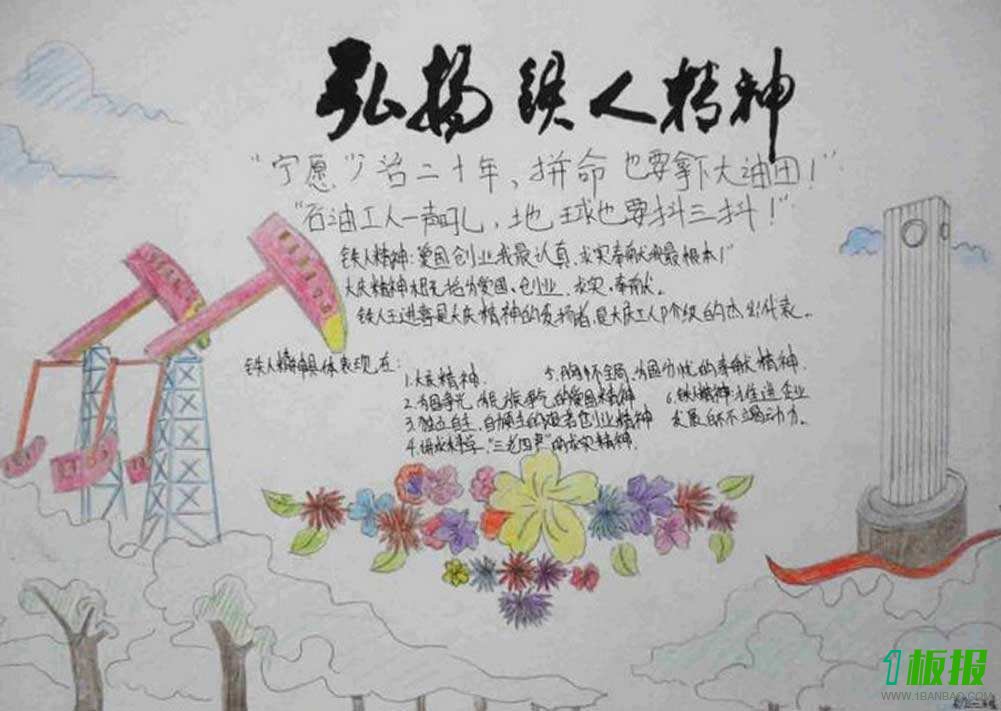 弘扬铁人精神
"宁愿少活二十年，拼命也要拿下大油田！"
"石油工人一声吼，地球也要抖三抖！"
铁人精神：爱国创业我最认真，求实奉献我最根本！
大庆精神概括为爱国、创业、求实、奉献。
铁人王进喜是大庆精神的 者，是大庆工人阶级的杰出代表。
铁人精神具体表现在：
1.大庆精神
2.为国争光、为民族争气的爱国精神
3.独立自主、自 的艰苦创业精神
4.讲求科学、"三老四严"的求实精神
5.胸怀全局、为国分忧的奉献精神
6.铁人精神 进企业
发展的不竭动力。
1板报
WWW.1BANBAO.COM